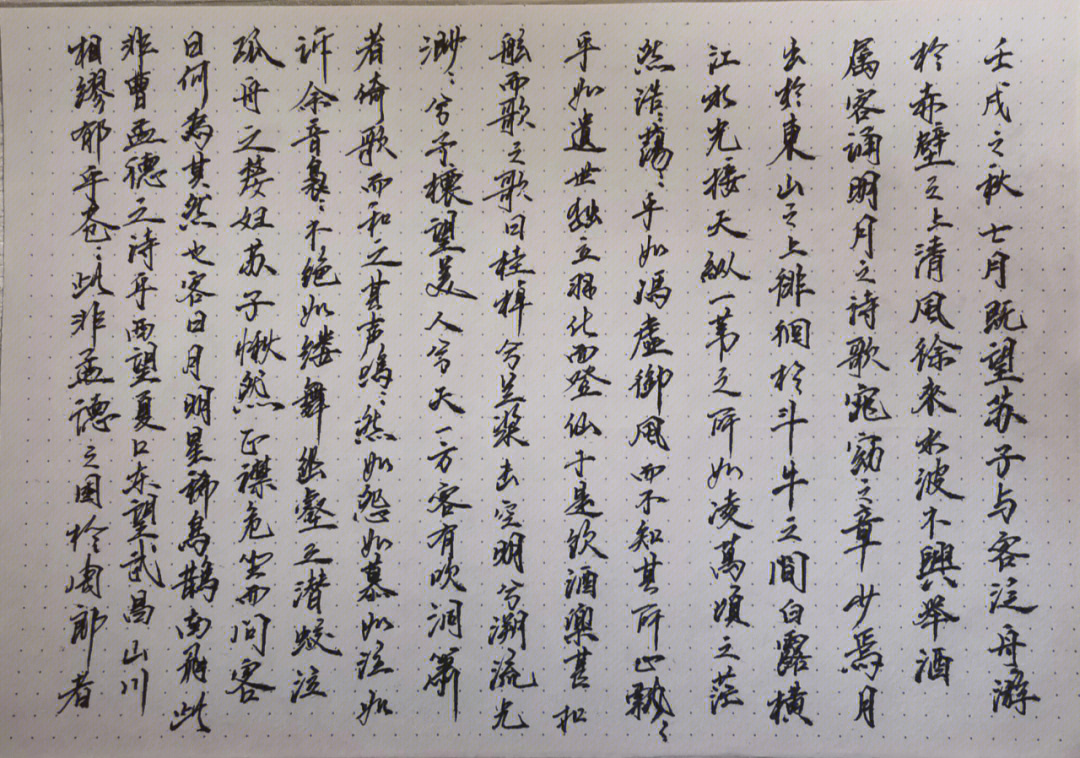 壬戌之秋七月既望苏子与客泛舟游
於赤壁之上清风徐来水波不興举酒
属客诵明月之诗歌窕窈之章少焉月
出於東山之上徘徊於斗牛之間白露横
江水光接天纵一苇之所如凌萬頃之茫
然浩〻蕩〻乎如馮虚御风而不知其所止飘〻
乎如遗世独立羽化而登仙于是饮酒樂甚扣
舷而歌之歌曰桂棹兮兰桨击空明兮溯流光
渺〻兮予懷望美人兮天一方客有吹洞箫
者倚歌而和之其声鳴〻然如怨如慕如泣如
诉余音袅〻不绝如缕舞幽壑之潜蛟泣
孤舟之嫠妇苏子愀然正襟危坐而问客
曰何为其然也客曰月明星稀烏鹊南飛此
非曹孟德之诗乎西望夏口东望武昌山川
相缪郁乎苍〻此非孟德之困於周郎者